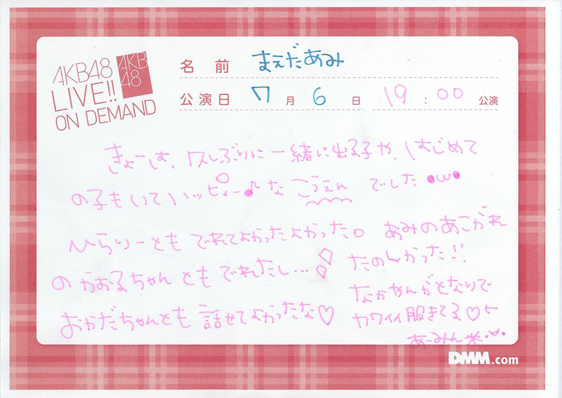 AKB48
LIVE!!
ON DEMAND
AKB
48
名前 まえだあみ
公演日 7月6日 19:00 公演
きょーは、久しぶりに一緒に出る子や、はじめて
の子もいてハッピィー♪な こうえん でした ●ω●
ひらりーとも でれてよかったよかった。
のかおるちゃんともでれたし...
おかだちゃんとも 話せてよかったな♡
あみのあこがれ
たのしかった!!
なかやんがとなりで
カワイイ服きてる♡
あーみん
DMM.com